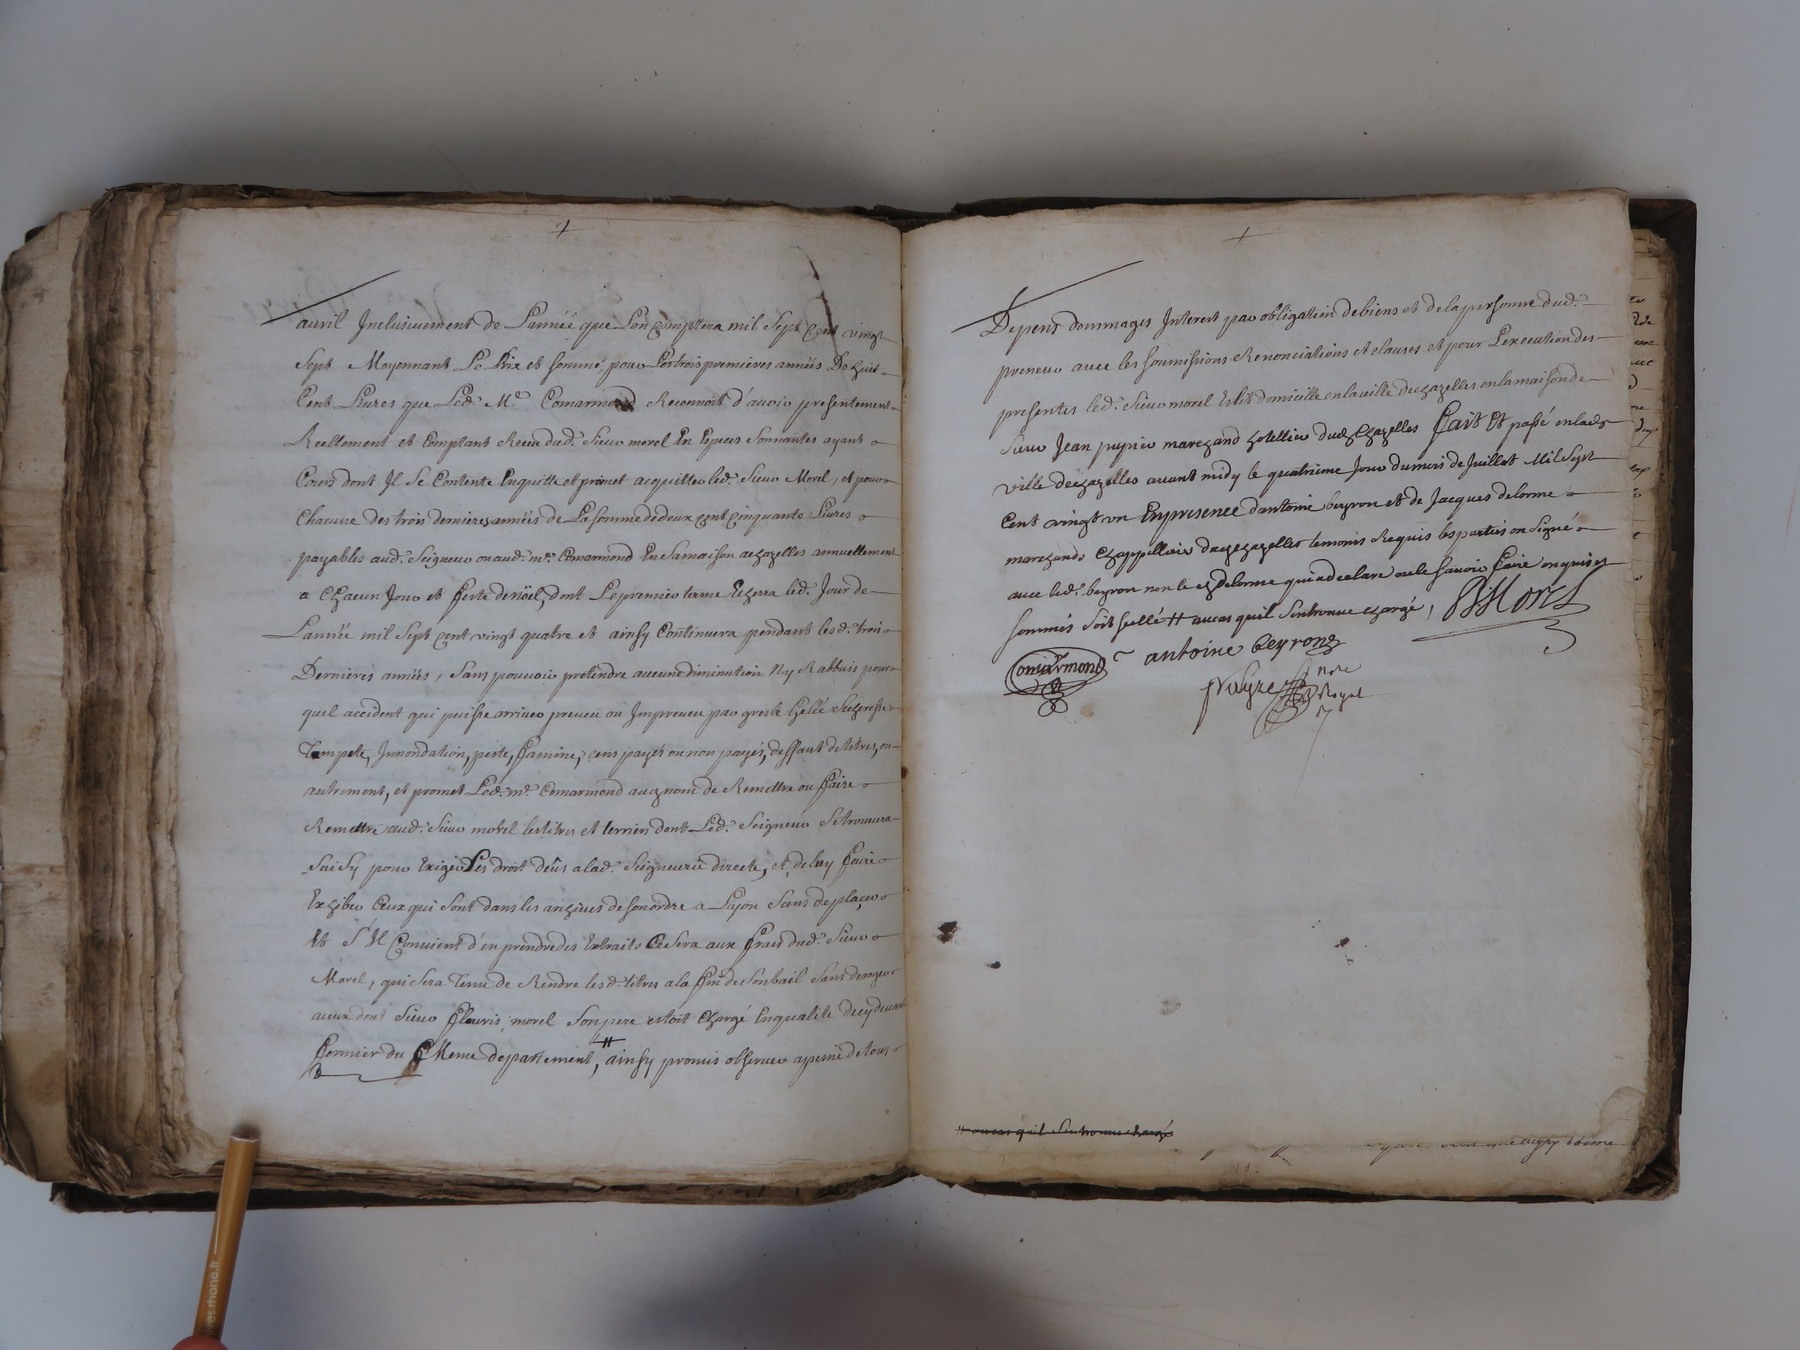 avril Inclusivement de L'année que L'on comptera mil Sept Cent vingt
Sept Moyennant Le Prix et somme, pour Les trois premieres années De huit
Cent Livres que Led. Me. Comarmond Reconnoit d'avoir presentement
Reellement et Comptant Receu dud. Sieur morel En Especes Sonnantes ayant
Cours dont Il Se Contente Enquitte et promet acquitter led. Sieur Morel, et pour
Chacune des trois dernieres années de La somme de deux Cent Cinquante Livres
payables aud. Seigneur ou aud. me. Comarmond En Sa maison a chazelles annuellement
a Chacun Jour et feste de nöel, dont Le premier terme Echerra led. Jour de
L'année mil Sept Cent vingt quatre et ainsy Continuera pendant les d. trois
Dernieres années, Sans pouvoir pretendre aucune diminution Ny Rabbais pour
quel accident qui puisse arriver preveu ou Impreveu par gresle Gelée Secheresse
Tempete, Innondation, peste, famine, cens payés ou non payés, deffaut de titres, ou
autrement, et promet Led. me. Comarmond aud nom de Remettre ou faire
Remettre aud. Sieur morel les titres et terrier dont Led. Seigneur Se trouvera
Saisy pour Exiger Les droit deüs a lad. Seigneurie directe, et de luy faire
Exhiber Ceux qui Sont dans les archives de Son ordre a Lyon Sans deplacer
Et S'Il Convient d'en prendre des Extraits Ce Sera aux frais dud. Sieur
Morel, qui Sera Tenu de Rendre les d. titres a la fin de Son bail Sans deroger
a ceux dont Sieur Fleuris morel Son pere estoit Chargé En qualité de cy devant
fermier du Meme departement, # ainsy promis observer a peine de tous
Depens dommages Interest par obligation de biens et de la personne dud.
preneur avec les soumissions Renonciations et clauses et pour L'execution des
presentes led. Sieur morel Eslit domicille en la ville de chazelles en la maison de
Sieur Jean pupier marchand hotellier dud Chazelles fait Et passé en lad
ville de chazelles avant midy le quatrieme Jour du mois de Juillet Mil Sept
Cent vingt un En presence d'antoine beyron et de Jacques delorme
marchands Chappelliers dud chazelles temoins Requis les parties on Signé
avec led. beyron non led delorme qui a declare ne le Savoir faire enquis et
sommés Soit scellé # au cas qu'il Sen trouve chargé, BMorel
Comarmond antoine beyron
Nore
Royal
# au cas qu'il Sen trouve chargé